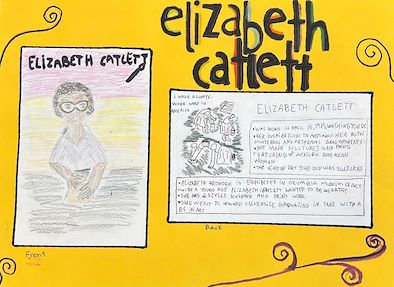 elizabeth
catlett
ELIZABETH CATLETT
I HAVE ALWAYS
WORK HARD IN
AMERICA
ELIZABETH CATLETT
• WAS BORN IN APRIL 15, 1915, WASHINGTON DC
• HER INSPIRATION TO ART WAS HER BOTH
MATERNAL AND PATERNAL GRANDPARENTS
• SHE MADE SCULTURES AND PRINTS
FEATURING OF AFRICAN AMERICAN
WOMEN
• THE KIND OF ART SHE DID WAS SCULTURES
• ELIZABETH ARTWORK IS EXHIBITED IN COLUMBIA MUSEUM OF ART
• SINCE A YOUNG AGE ELIZABETH CATLETT WANTED TO BE AN ARTIST
• SHE HAS 2 STYLES SCULPING AND PRINT WORK
• SHE WENT TO HOWARD UNIVERSITY, GRADUATING IN 1935 WITH A
BS IN ART
Front
Back